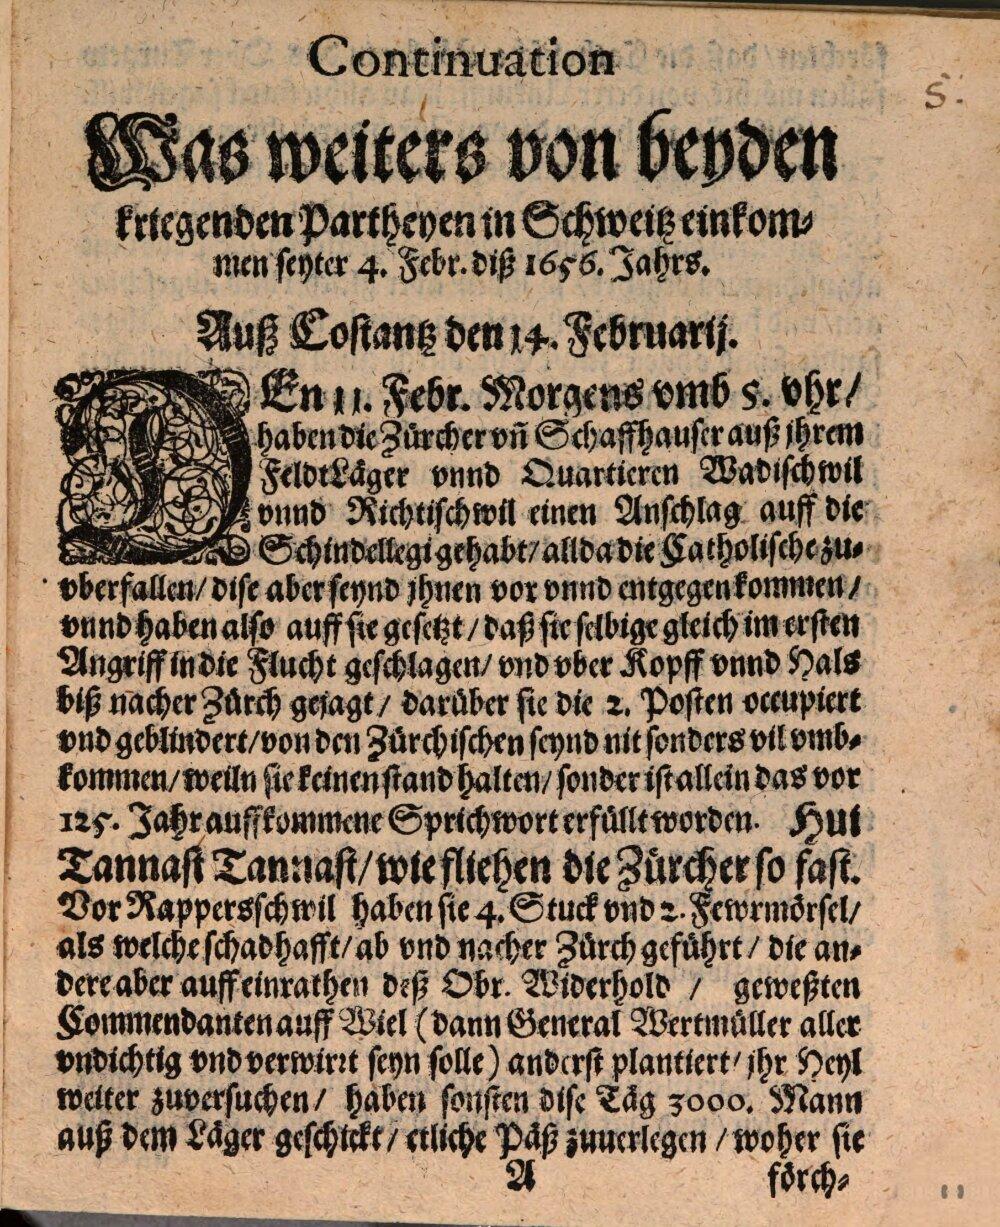 Continuation
5.
Was weiters von beyden
kriegenden Partheyen in Schweitz einkom-
men seyter 4. Febr. diß 1656. Jahrs.
Auß Costantz den 14. Februarij.
DEn 11. Febr. Morgens vmb 5. vhr /
haben die Zürcher vñ Schaffhauser auß jhrem
FeldtLäger vnnd Quartieren Wadischwil
vnnd Richtischwil einen Anschlag auff die
Schindellegi gehabt / allda die Catholische zu-
vberfallen / dise aber seynd jhnen vor vnnd entgegen kommen /
vnnd haben also auff sie gesetzt / daß sie selbige gleich im ersten
Angriff in die Flucht geschlagen / vnd vber Kopff vnnd Hals
biß nacher Zürch gejagt / darüber sie die 2. Posten occupiert
vnd geblindert / von den Zürchischen seynd nit sonders vil vmb-
kommen / weiln sie keinen stand halten / sonder ist allein das vor
125. Jahr auffkommene Sprichwort erfüllt worden. Hui
Tannast Tannast / wie fliehen die Zürcher so fast.
Vor Rappersschwil haben sie 4. Stuck vnd 2. Fewrmörsel /
als welche schadhafft / ab vnd nacher Zürch geführt / die an-
dere aber auff einrathen deß Obr. Widerhold / geweßten
Commendanten auff Wiel (dann General Wertmüller aller
vndichtig vnd verwirrt seyn solle) anderst plantiert / jhr Heyl
weiter zuversuchen / haben sonsten dise Täg 3000. Mann
auß dem Läger geschickt / etliche Päß zuuerlegen / woher sie
A förch-